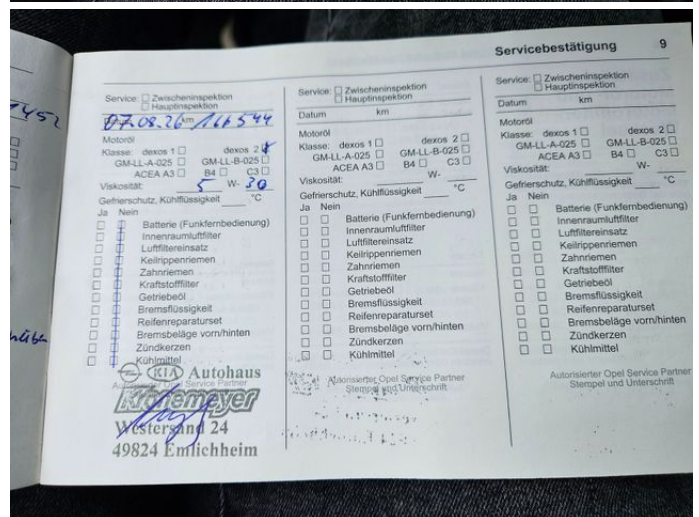 Servicebestätigung 9
1452
Service: Zwischeninspektion
Hauptinspektion
Datum km
07.08.26 166544
Motoröl
Klasse: dexos 1 dexos 2
GM-LL-A-025 GM-LL-B-025
ACEA A3 B4 C3
Viskosität: 5 W- 30
Gefrierschutz, Kühlflüssigkeit ____ °C
Ja Nein
Batterie (Funkfernbedienung)
Innenraumluftfilter
Luftfiltereinsatz
Keilrippenriemen
Zahnriemen
Kraftstofffilter
Getriebeöl
Bremsflüssigkeit
Reifenreparaturset
Bremsbeläge vorn/hinten
Zündkerzen
Kühlmittel
KIA Autohaus
Kronemeyer
Westersand 24
49824 Emlichheim
Service: Zwischeninspektion
Hauptinspektion
Datum km
Motoröl
Klasse: dexos 1 dexos 2
GM-LL-A-025 GM-LL-B-025
ACEA A3 B4 C3
Viskosität: ____ W- ____
Gefrierschutz, Kühlflüssigkeit ____ °C
Ja Nein
Batterie (Funkfernbedienung)
Innenraumluftfilter
Luftfiltereinsatz
Keilrippenriemen
Zahnriemen
Kraftstofffilter
Getriebeöl
Bremsflüssigkeit
Reifenreparaturset
Bremsbeläge vorn/hinten
Zündkerzen
Kühlmittel
Autorisierter Opel Service Partner
Stempel und Unterschrift
Service: Zwischeninspektion
Hauptinspektion
Datum km
Motoröl
Klasse: dexos 1 dexos 2
GM-LL-A-025 GM-LL-B-025
ACEA A3 B4 C3
Viskosität: ____ W- ____
Gefrierschutz, Kühlflüssigkeit ____ °C
Ja Nein
Batterie (Funkfernbedienung)
Innenraumluftfilter
Luftfiltereinsatz
Keilrippenriemen
Zahnriemen
Kraftstofffilter
Getriebeöl
Bremsflüssigkeit
Reifenreparaturset
Bremsbeläge vorn/hinten
Zündkerzen
Kühlmittel
Autorisierter Opel Service Partner
Stempel und Unterschrift